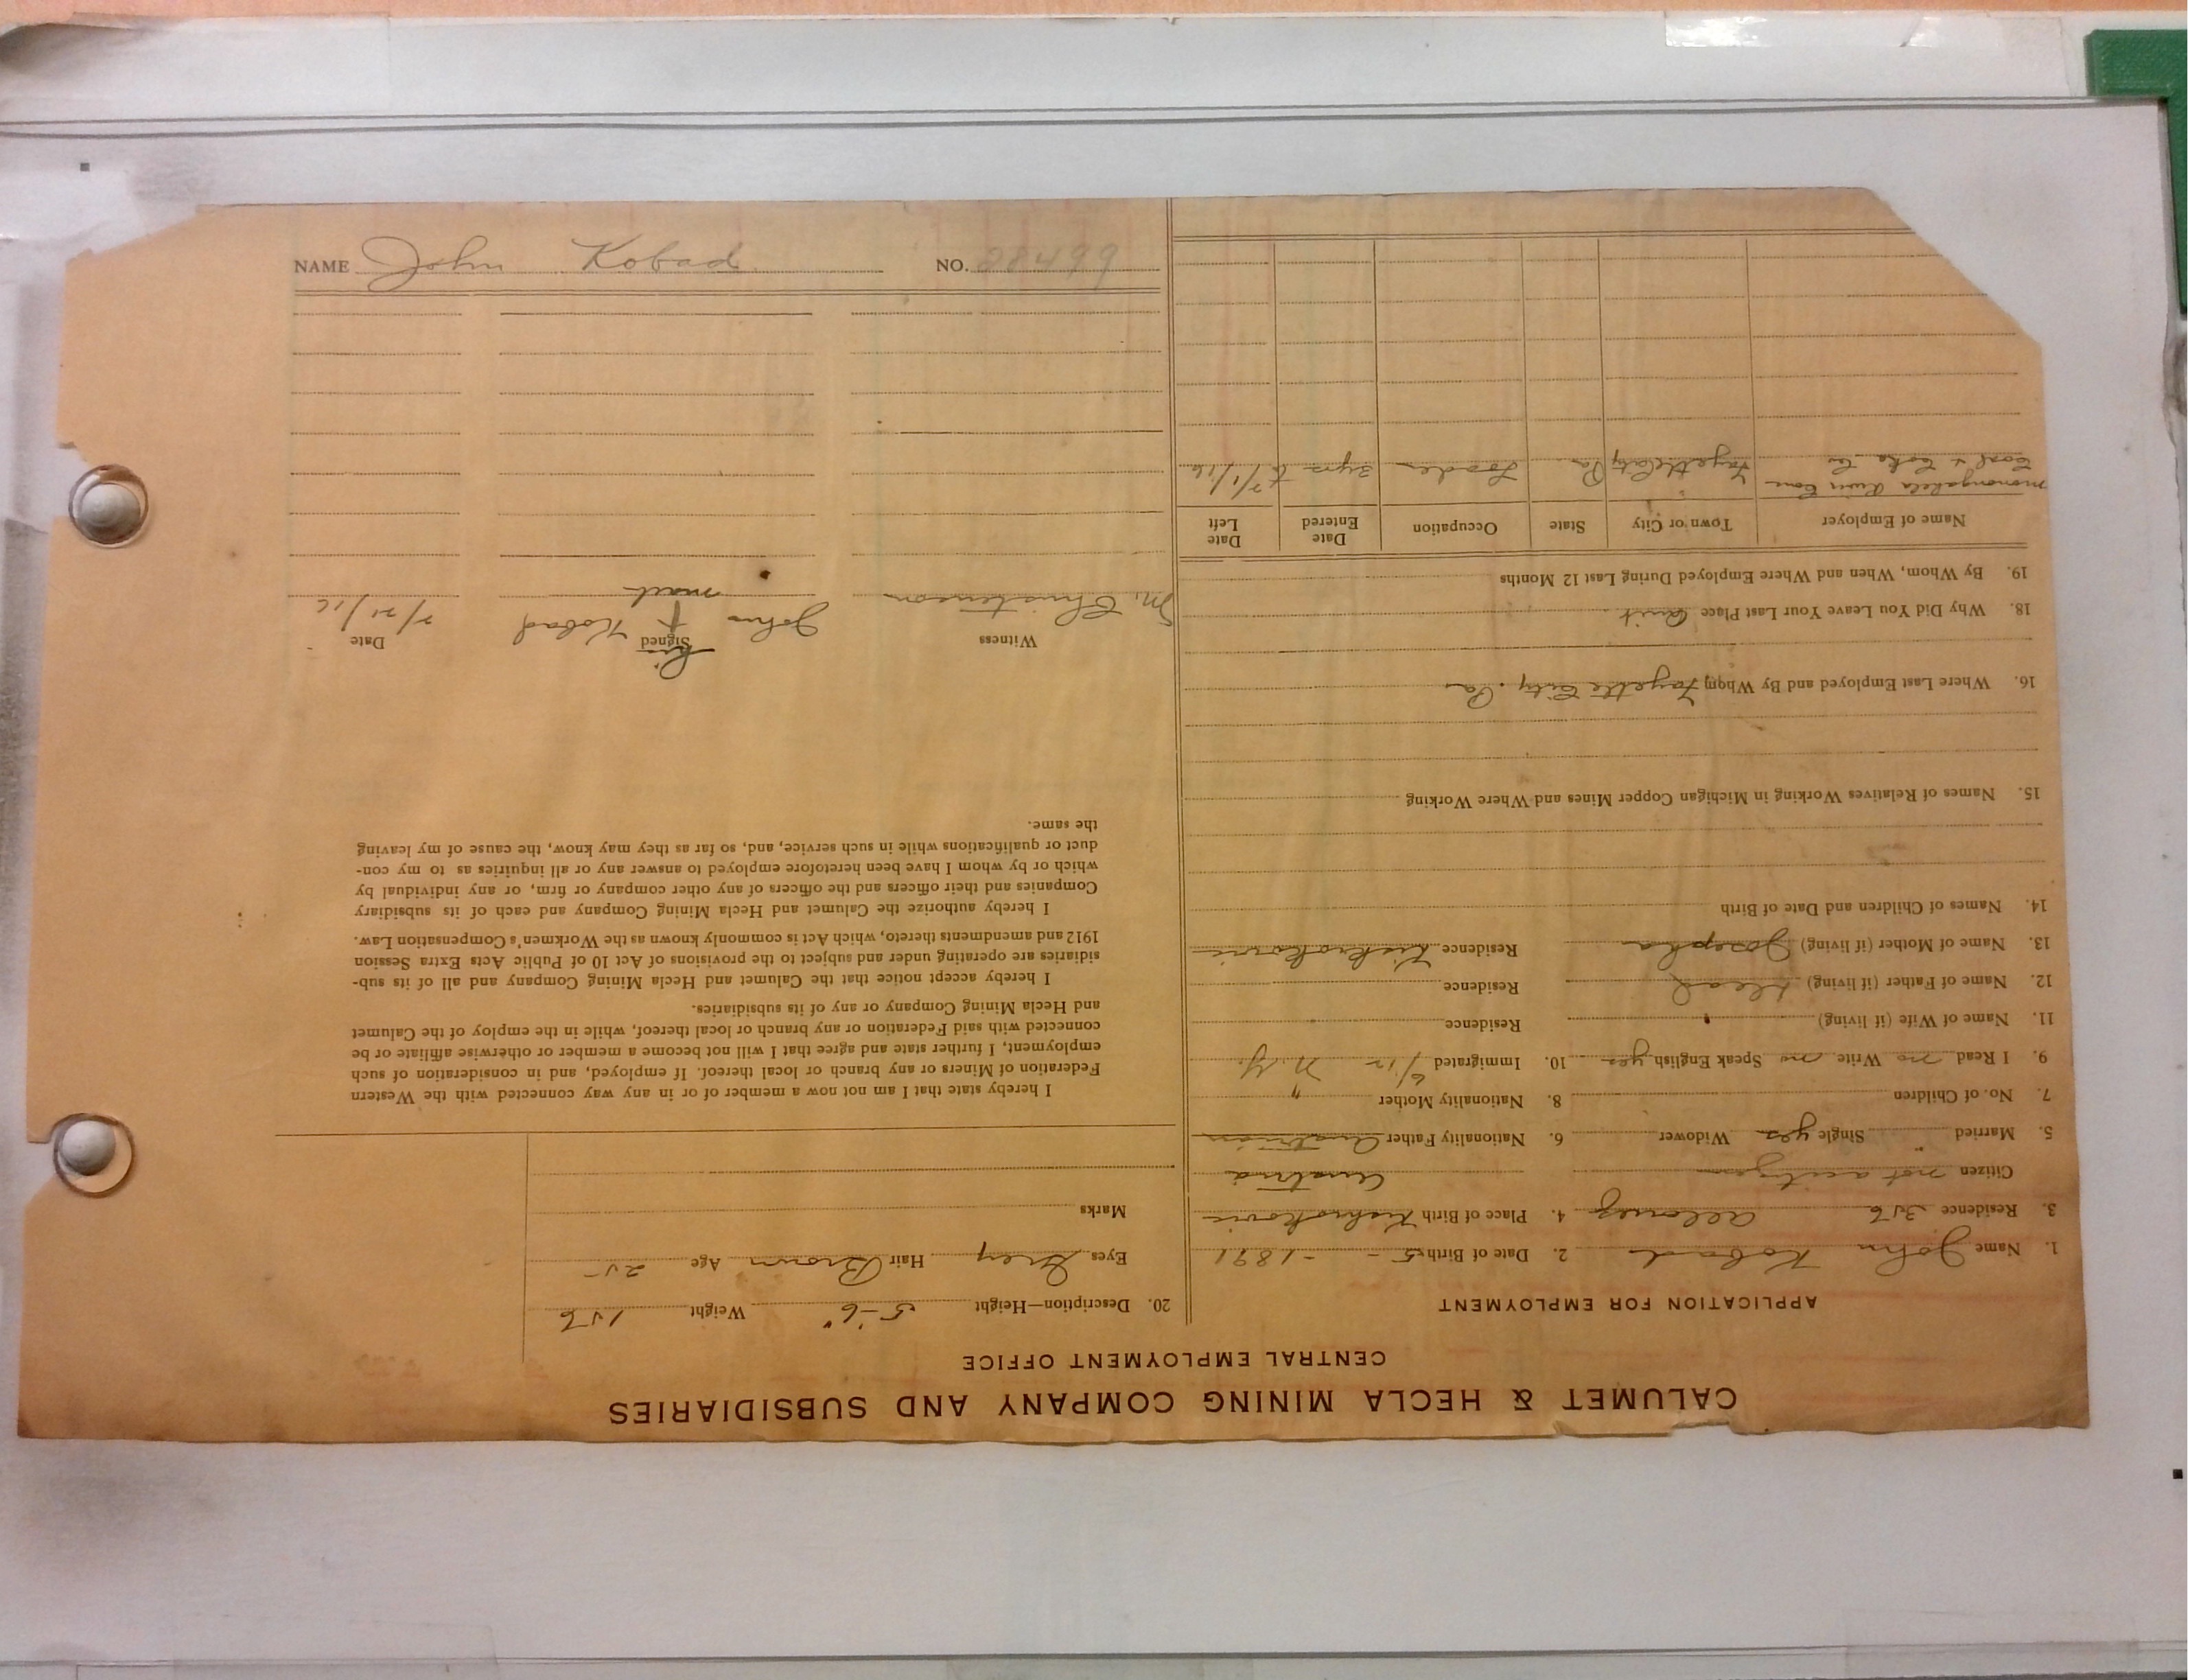 CALUMET & HECLA MINING COMPANY AND SUBSIDIARIES
CENTRAL EMPLOYMENT OFFICE
APPLICATION FOR EMPLOYMENT
1. Name John Kobad 2. Date of Birth 5 - - 1891
3. Residence 356 Allouez 4. Place of Birth
Citizen not a citizen Austria
5. Married Single yes Widower 6. Nationality Father Austrian
7. No. of Children 8. Nationality Mother "
9. I Read no Write no Speak English yes 10. Immigrated 6/12 N. Y.
11. Name of Wife (if living) Residence
12. Name of Father (if living) dead Residence
13. Name of Mother (if living) Josepha Residence
14. Names of Children and Date of Birth
15. Names of Relatives Working in Michigan Copper Mines and Where Working
16. Where Last Employed and By Whom Fayette City, Pa
18. Why Did You Leave Your Last Place Quit
19. By Whom, When and Where Employed During Last 12 Months
Name of Employer Town or City State Occupation Date Entered Date Left
Monongahela River Con
Coal & Coke Co Fayette City Pa Loader 3 yrs to 7/1/16
20. Description—Height 5'-6" Weight 156
Eyes Grey Hair Brown Age 25
Marks
I hereby state that I am not now a member of or in any way connected with the Western
Federation of Miners or any branch or local thereof. If employed, and in consideration of such
employment, I further state and agree that I will not become a member or otherwise affiliate or be
connected with said Federation or any branch or local thereof, while in the employ of the Calumet
and Hecla Mining Company or any of its subsidiaries.
I hereby accept notice that the Calumet and Hecla Mining Company and all of its sub-
sidiaries are operating under and subject to the provisions of Act 10 of Public Acts Extra Session
1912 and amendments thereto, which Act is commonly known as the Workmen's Compensation Law.
I hereby authorize the Calumet and Hecla Mining Company and each of its subsidiary
Companies and their officers and the officers of any other company or firm, or any individual by
which or by whom I have been heretofore employed to answer any or all inquiries as to my con-
duct or qualifications while in such service, and, so far as they may know, the cause of my leaving
the same.
Witness Signed Date
his
M. Christenson John X Kobad 7/21/16
mark
NAME John Kobad NO. 28499